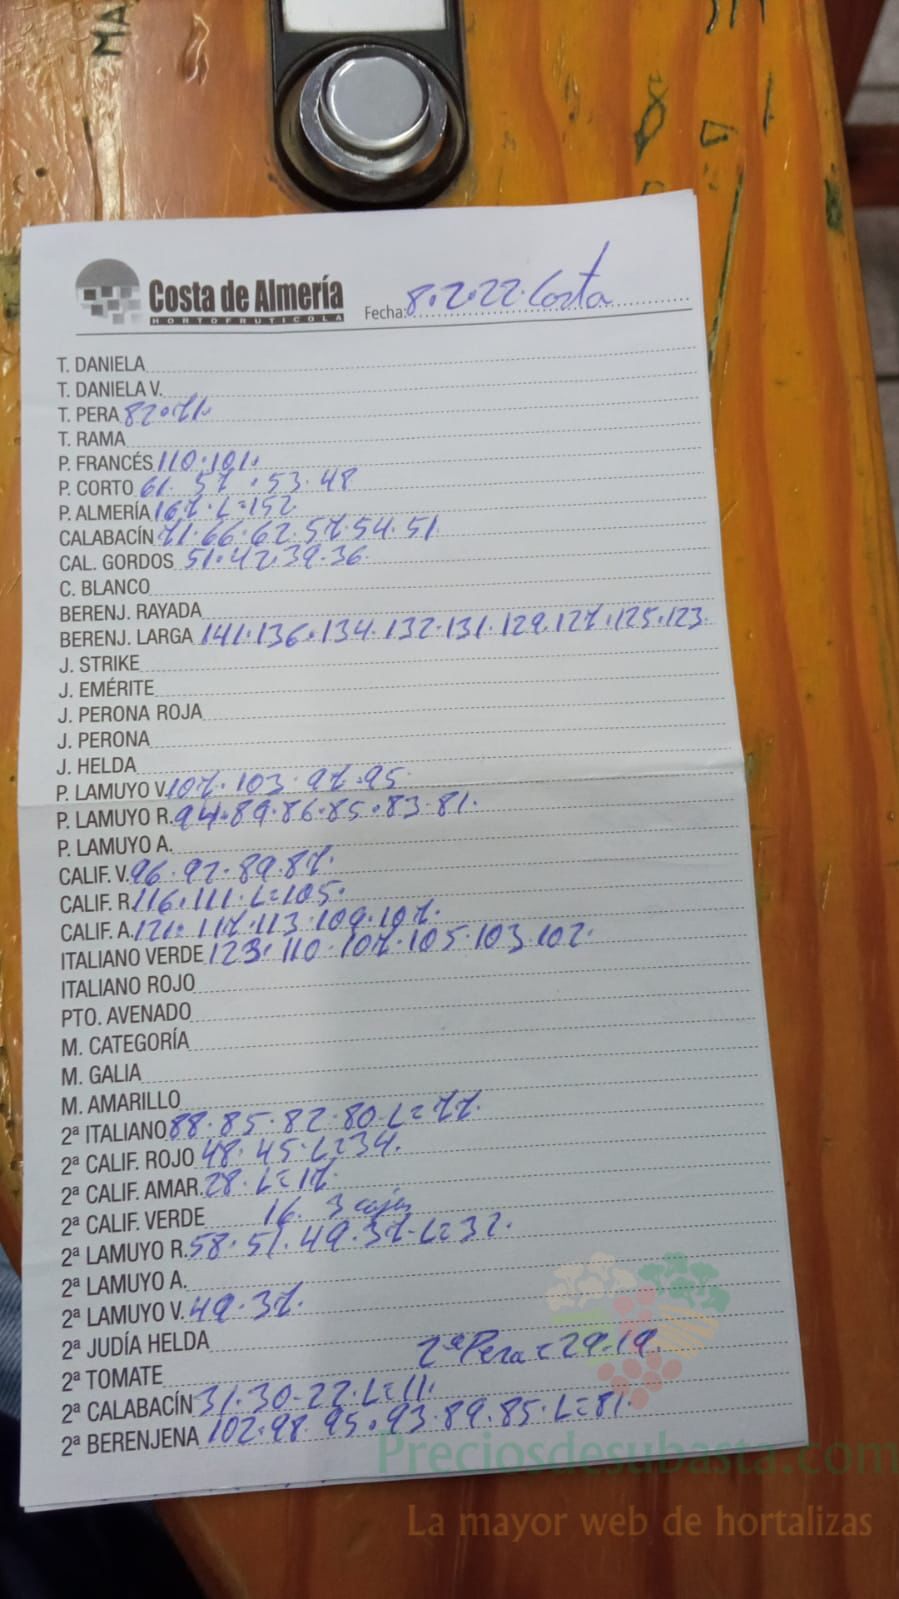 MA
Costa de Almería
HORTOFRUTICOLA
Fecha: 8.2.22. Costa
T. DANIELA
T. DANIELA V.
T. PERA 82.71.
T. RAMA
P. FRANCÉS 110.101.
P. CORTO 61. 57 .53.48
P. ALMERÍA 167. L=152
CALABACÍN 71.66.62.57.54.51
CAL. GORDOS 51.42.39.36
C. BLANCO
BERENJ. RAYADA
BERENJ. LARGA 141.136.134.132.131.129.127.125.123.
J. STRIKE
J. EMÉRITE
J. PERONA ROJA
J. PERONA
J. HELDA
P. LAMUYO V. 107.103.97.95.
P. LAMUYO R. 94.89.86.85.83.81.
P. LAMUYO A.
CALIF. V. 96.92.89.87.
CALIF. R. 116.111.L=105.
CALIF. A. 121.117.113.109.107.
ITALIANO VERDE 123.110.107.105.103.102.
ITALIANO ROJO
PTO. AVENADO
M. CATEGORÍA
M. GALIA
M. AMARILLO
2ª ITALIANO 88.85.82.80.L=77.
2ª CALIF. ROJO 48.45.L=34.
2ª CALIF. AMAR. 28.L=17.
2ª CALIF. VERDE 16. 3 cajas
2ª LAMUYO R. 58.51.49.37.L=32.
2ª LAMUYO A.
2ª LAMUYO V. 49.37.
2ª JUDÍA HELDA
2ª Pera = 29.19.
2ª TOMATE
2ª CALABACÍN 31.30-22.L=11.
2ª BERENJENA 102.98.95.93.89.85.L=81.
Preciosdesubasta.com
La mayor web de hortalizas